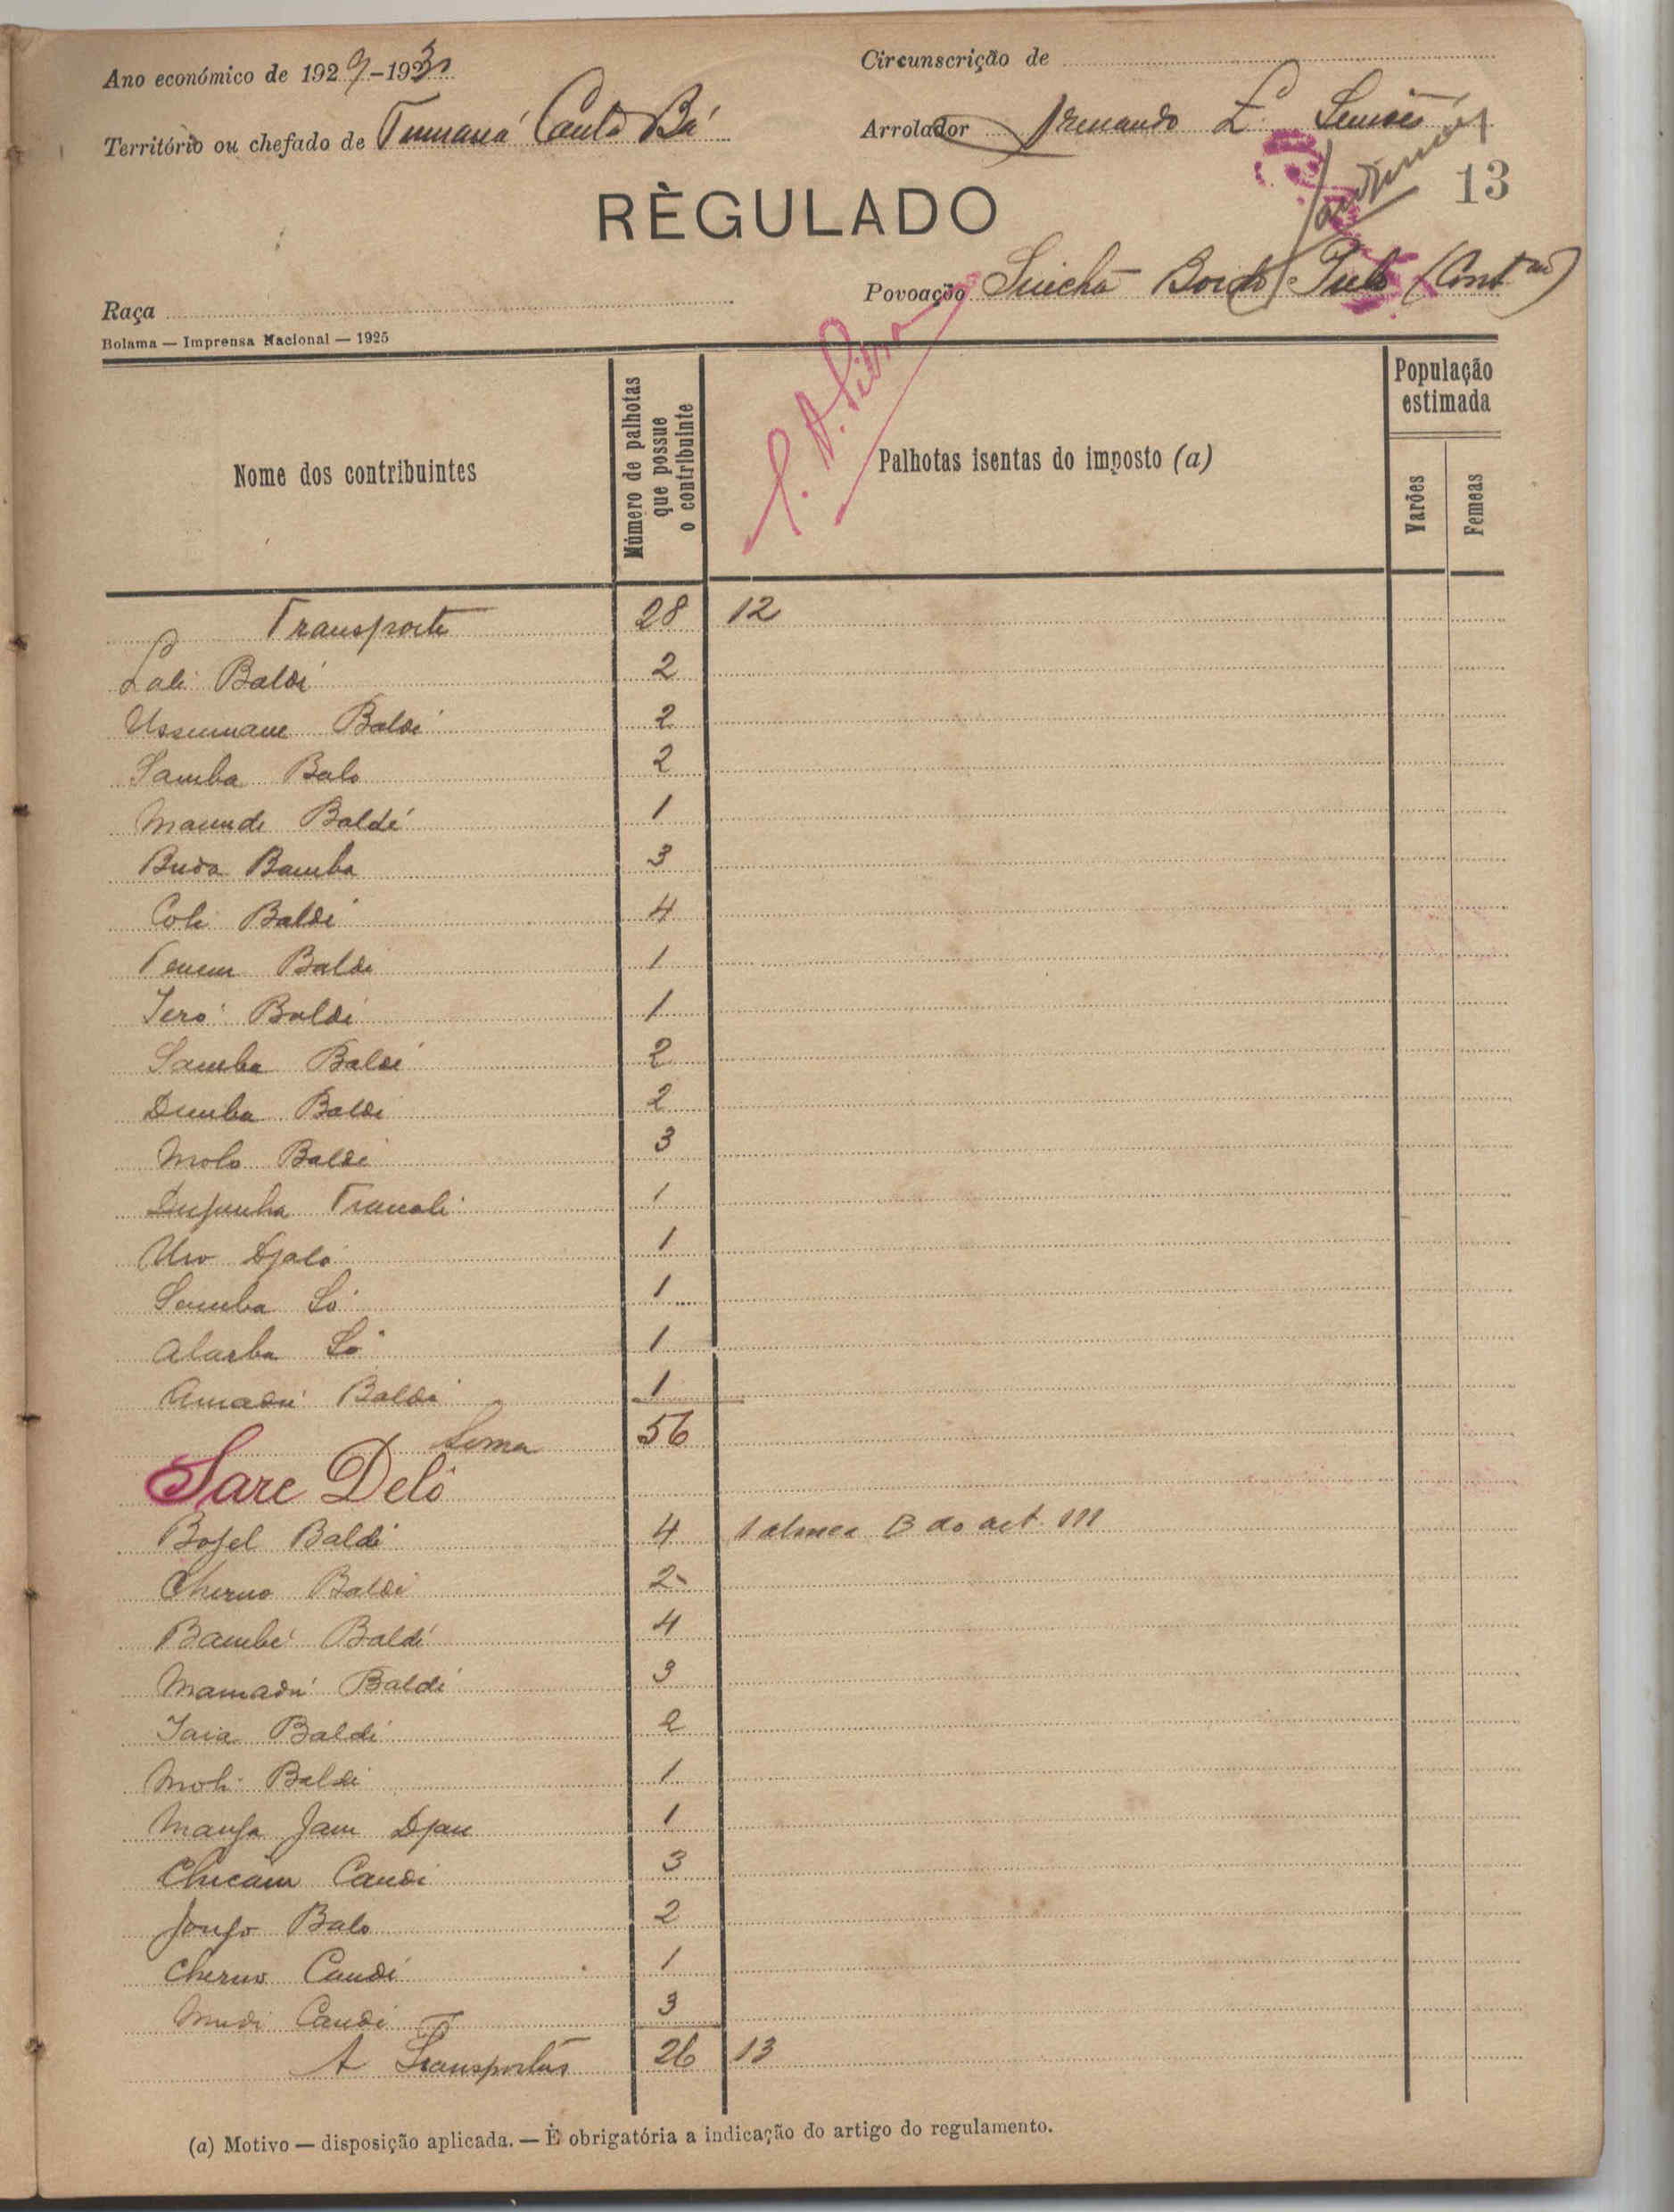 Ano económico de 1929-1930
Circunscrição de
Território ou chefado de Tumaná Canta Bá
Arrolador Armando L. Simões
13
RÈGULADO
Raça
Povoação Sinchã (Contm)
Bolama — Imprensa Nacional — 1925
Nome dos contribuintes
Número de palhotas que possue o contribuinte
Palhotas isentas do imposto (a)
População estimada
Varões
Femeas
Transporte 28 12
Lali Baldé 2
Ussumane Baldé 2
Samba Balo 2
Maunde Baldé 1
Buda Bamba 3
Coli Baldé 4
Tenem Baldé 1
Iéro Baldé 1
Samba Baldé 2
Demba Baldé 2
Molo Baldé 3
1
Uro Djaló 1
Samba Só 1
Alarba Só 1
Amadú Baldé 1
Soma 56
Sare Delô
Bojel Baldé 4 1 alinea B do art. 111
Cherno Baldé 2
Bambé Baldé 4
Mamadú Baldé 3
Iaia Baldé 2
Moli Baldé 1
Manga Jam Djau 1
Chicam Candé 3
Baló 2
Cherno Candé 1
Mudi Candé 3
A Transportar 26 13
(a) Motivo — disposição aplicada. — É obrigatória a indicação do artigo do regulamento.